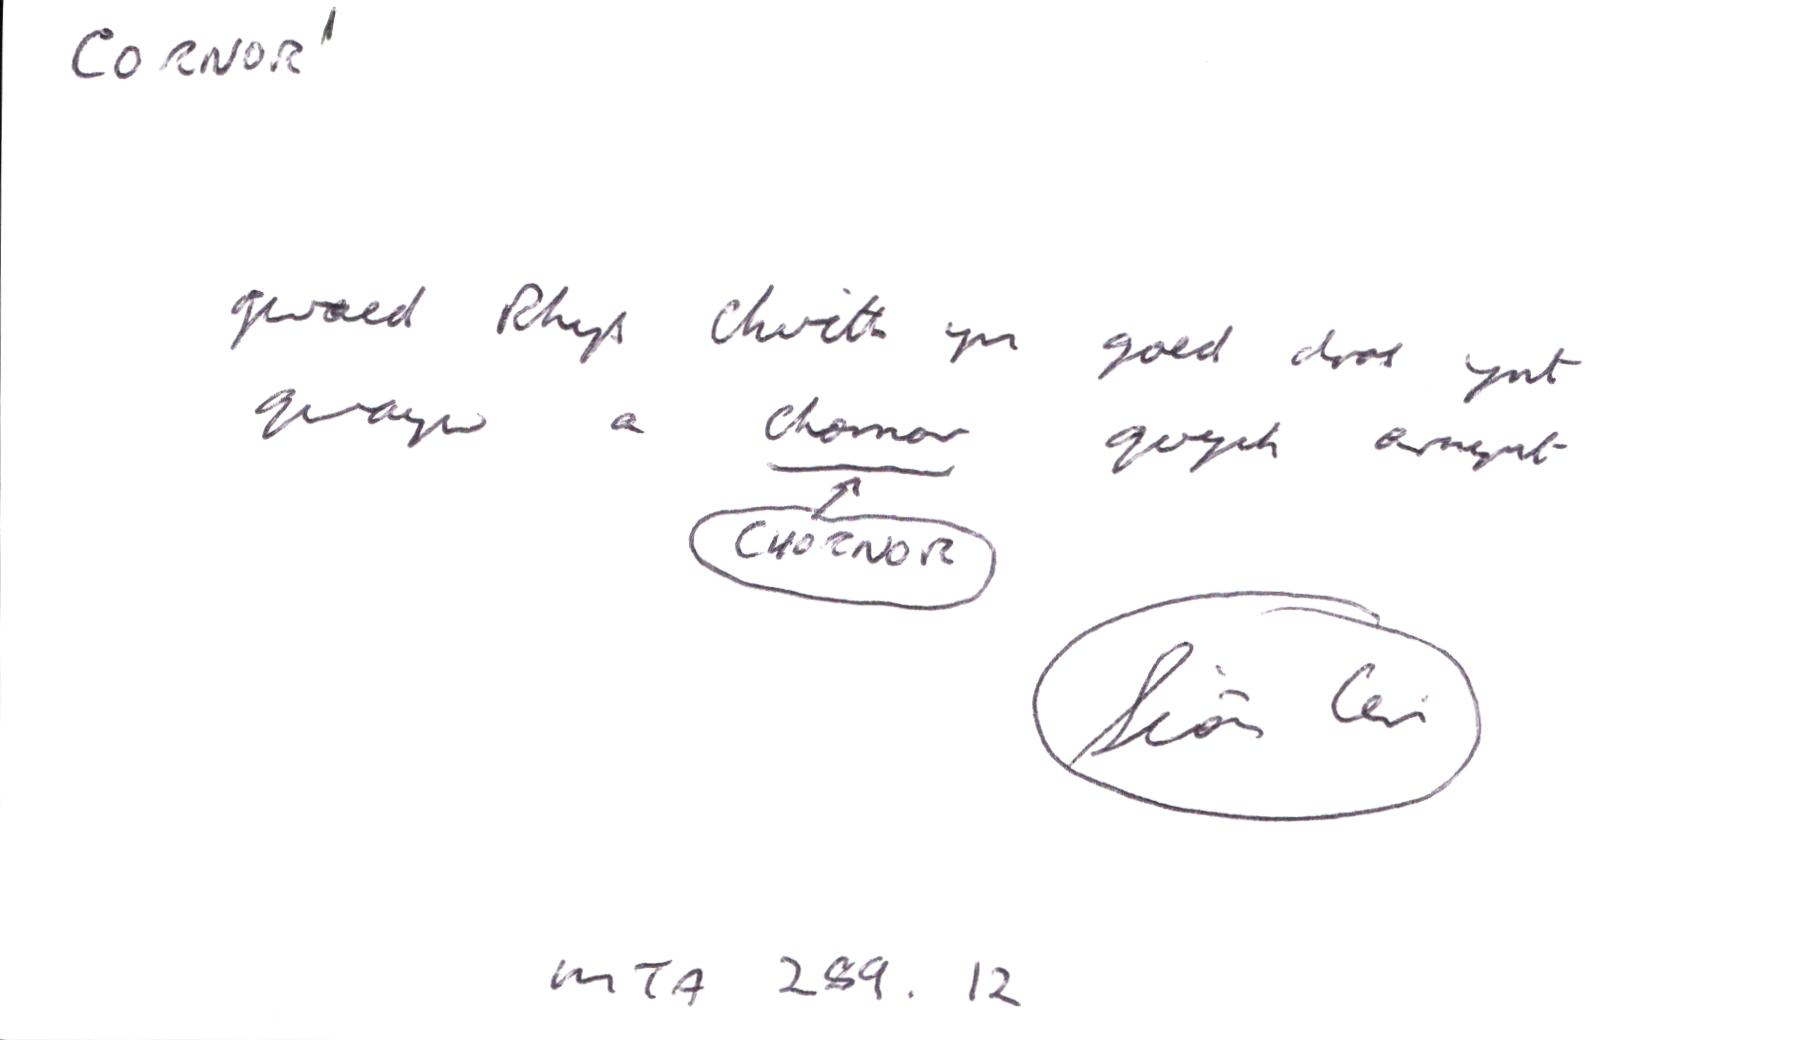 CORNOR¹
gwaed Rhys chwith yn goed dros ynt
gwayw a chornor gwych arnynt
CHORNOR
Siôn Ceri
MTA 289. 12